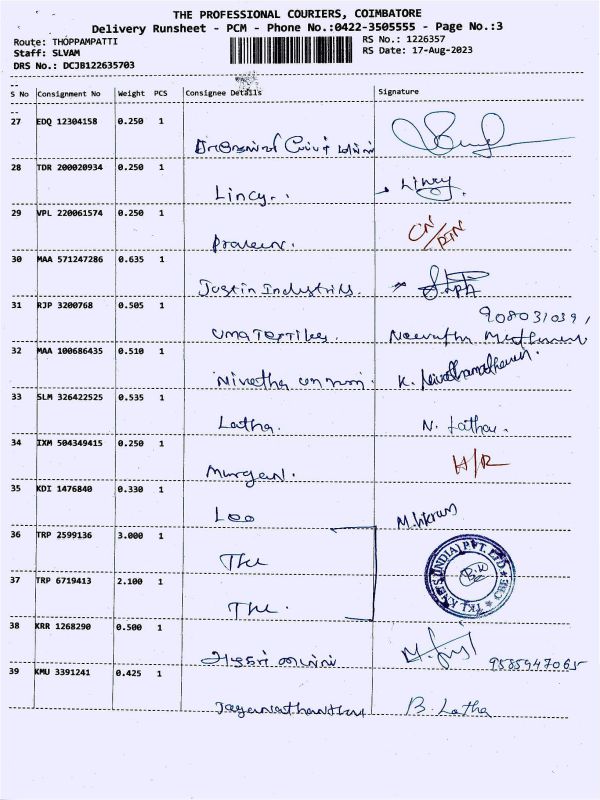 THE PROFESSIONAL COURIERS, COIMBATORE
Delivery Runsheet - PCM - Phone No.:0422-3505555 - Page No.:3
Route: THOPPAMPATTI RS No.: 1226357
Staff: SLVAM RS Date: 17-Aug-2023
DRS No.: DCJB122635703
S No Consignment No Weight PCS Consignee Details Signature
27 EDQ 12304158 0.250 1
28 TDR 200020934 0.250 1
Lincy. Lincy
29 VPL 220061574 0.250 1
Praveen. CN/RTN
30 MAA 571247286 0.635 1
Justin Industries.
31 RJP 3200768 0.505 1
9080310391
Uma Textiles
32 MAA 100686435 0.510 1
Nivetha K.
33 SLM 326422525 0.535 1
Latha. N. Latha.
34 IXM 504349415 0.250 1
Murgan. H/R
35 KDI 1476840 0.330 1
Leo M. Vikram
36 TRP 2599136 3.000 1
The
37 TRP 6719413 2.100 1
The.
(INDIA) PVT. LTD CBE
38 KRR 1268290 0.500 1
9585947065
39 KMU 3391241 0.425 1
B. Latha